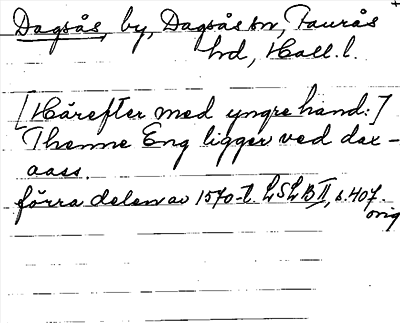 Dagsås, by, Dagsås sn, Faurås
hd, Hall. l.
[Härefter med yngre hand:]
Thenne Eng ligger ved dax-
aass.
förra delen av 1570-t. LSLB II, s. 407.
orig